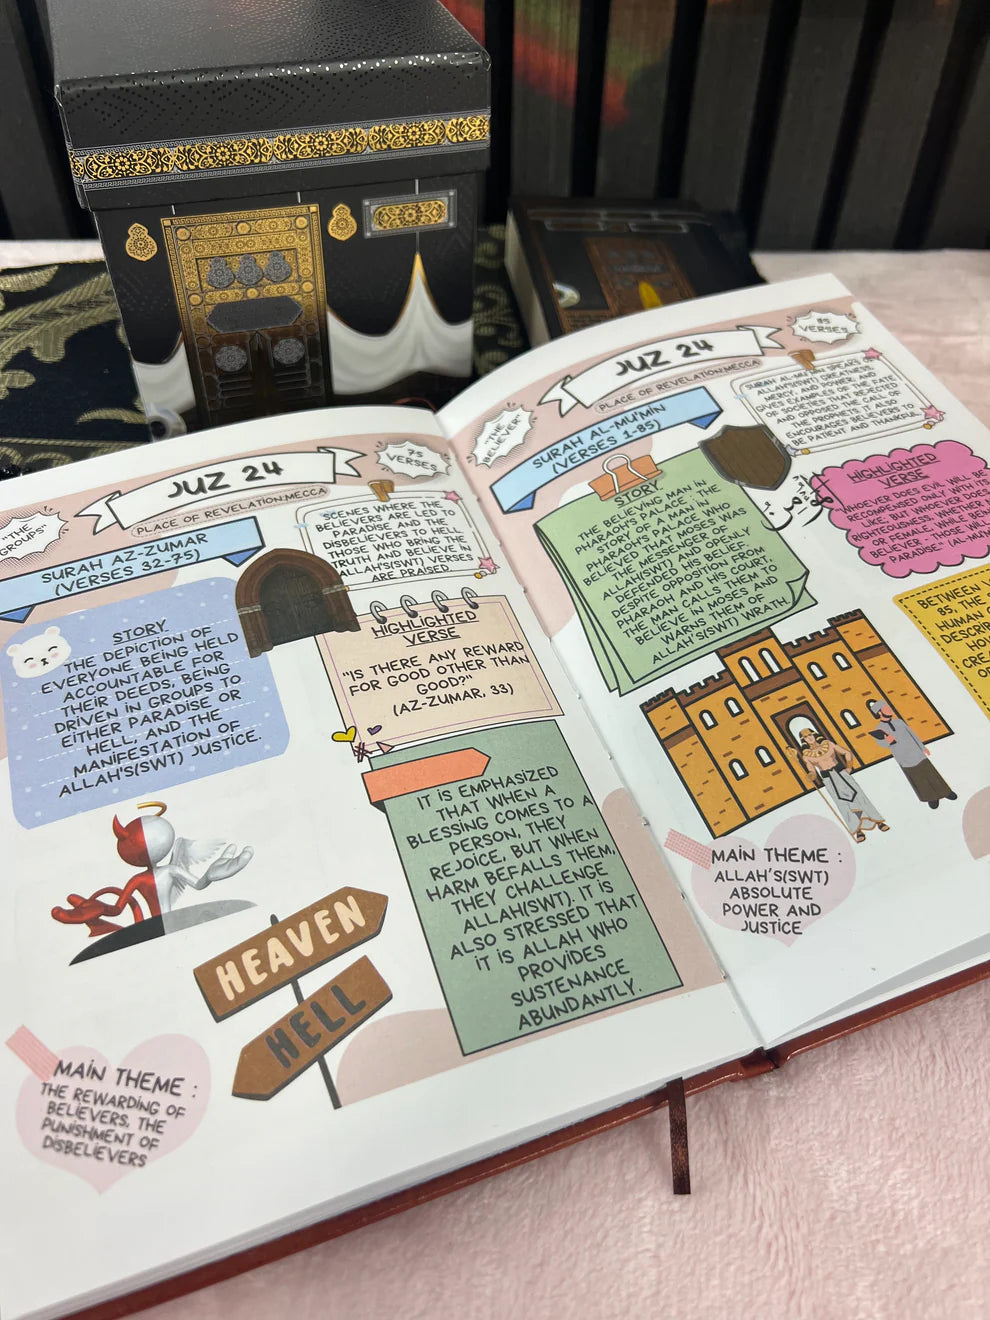 JUZ 24
75
VERSES
PLACE OF REVELATION:MECCA
"THE
GROUPS"
SURAH AZ-ZUMAR
(VERSES 32-75)
SCENES WHERE THE
BELIEVERS ARE LED TO
PARADISE AND THE
DISBELIEVERS TO HELL.
THOSE WHO BRING THE
TRUTH AND BELIEVE IN
ALLAH'S(SWT) VERSES
ARE PRAISED.
STORY
THE DEPICTION OF
EVERYONE BEING HELD
ACCOUNTABLE FOR
THEIR DEEDS, BEING
DRIVEN IN GROUPS TO
EITHER PARADISE OR
HELL, AND THE
MANIFESTATION OF
ALLAH'S(SWT) JUSTICE.
HIGHLIGHTED
VERSE
"IS THERE ANY REWARD
FOR GOOD OTHER THAN
GOOD?"
(AZ-ZUMAR, 33)
IT IS EMPHASIZED
THAT WHEN A
BLESSING COMES TO A
PERSON, THEY
REJOICE, BUT WHEN
HARM BEFALLS THEM,
THEY CHALLENGE
ALLAH(SWT). IT IS
ALSO STRESSED THAT
IT IS ALLAH WHO
PROVIDES
SUSTENANCE
ABUNDANTLY.
HEAVEN
HELL
MAIN THEME :
THE REWARDING OF
BELIEVERS, THE
PUNISHMENT OF
DISBELIEVERS
JUZ 24
85
VERSES
PLACE OF REVELATION:MECCA
"THE
BELIEVER"
SURAH AL-MU'MIN
(VERSES 1-85)
SURAH AL-MU'MIN SPEAKS OF
ALLAH'S(SWT) GREATNESS,
MERCY, AND POWER, AND
GIVES EXAMPLES OF THE FATE
OF SOCIETIES THAT REJECTED
AND OPPOSED THE CALL OF
THE PROPHETS. IT ALSO
ENCOURAGES BELIEVERS TO
BE PATIENT AND THANKFUL.
STORY
THE BELIEVING MAN IN
PHARAOH'S PALACE : THE
STORY OF A MAN IN
PHARAOH'S PALACE WHO
BELIEVED THAT MOSES WAS
THE MESSENGER OF
ALLAH(SWT) AND OPENLY
DEFENDED HIS BELIEF,
DESPITE OPPOSITION FROM
PHARAOH AND HIS COURT.
THE MAN CALLS THEM TO
BELIEVE IN MOSES AND
WARNS THEM OF
ALLAH'S(SWT) WRATH.
HIGHLIGHTED
VERSE
"WHOEVER DOES EVIL, WILL BE
RECOMPENSED ONLY WITH ITS
LIKE. BUT WHOEVER DOES
RIGHTEOUSNESS, WHETHER
OR FEMALE, WHILE BEING
BELIEVER - THOSE WILL
PARADISE" (AL-MU'M
BETWEEN
85, THE
HUMAN
DESCRIB
HOW
CRE
OF
MAIN THEME :
ALLAH'S(SWT)
ABSOLUTE
POWER AND
JUSTICE